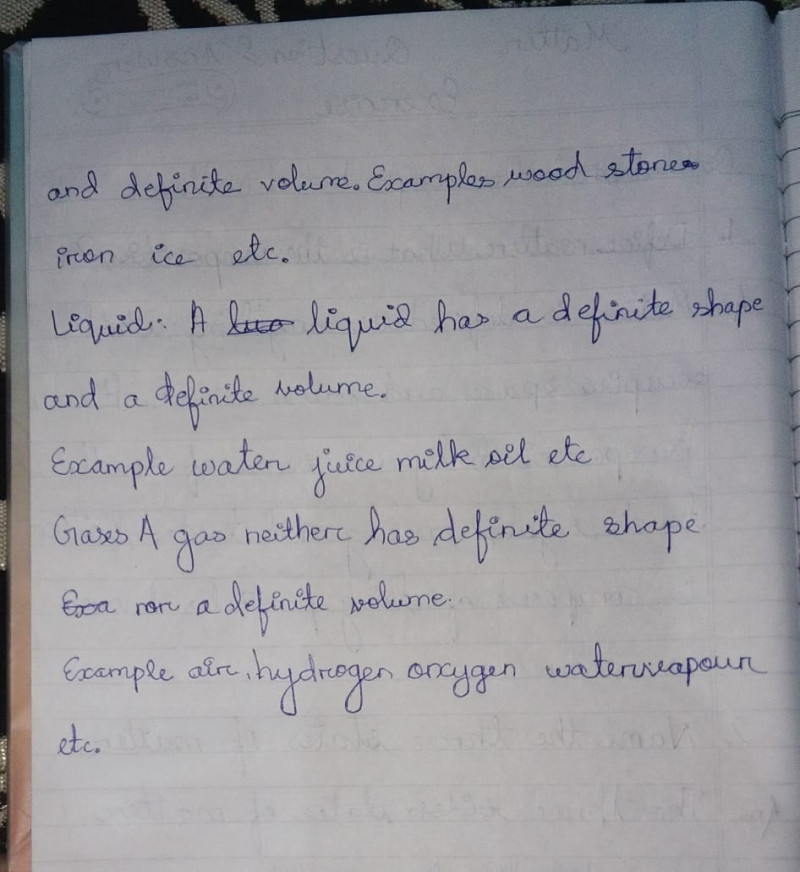 and definite volume. Examples wood stones
iron ice etc.
Liquid: A liquid has a definite shape
and a definite volume.
Example water juice milk oil etc
Gases A gas neither has definite shape
nor a definite volume.
Example air, hydrogen oxygen watervapour
etc.